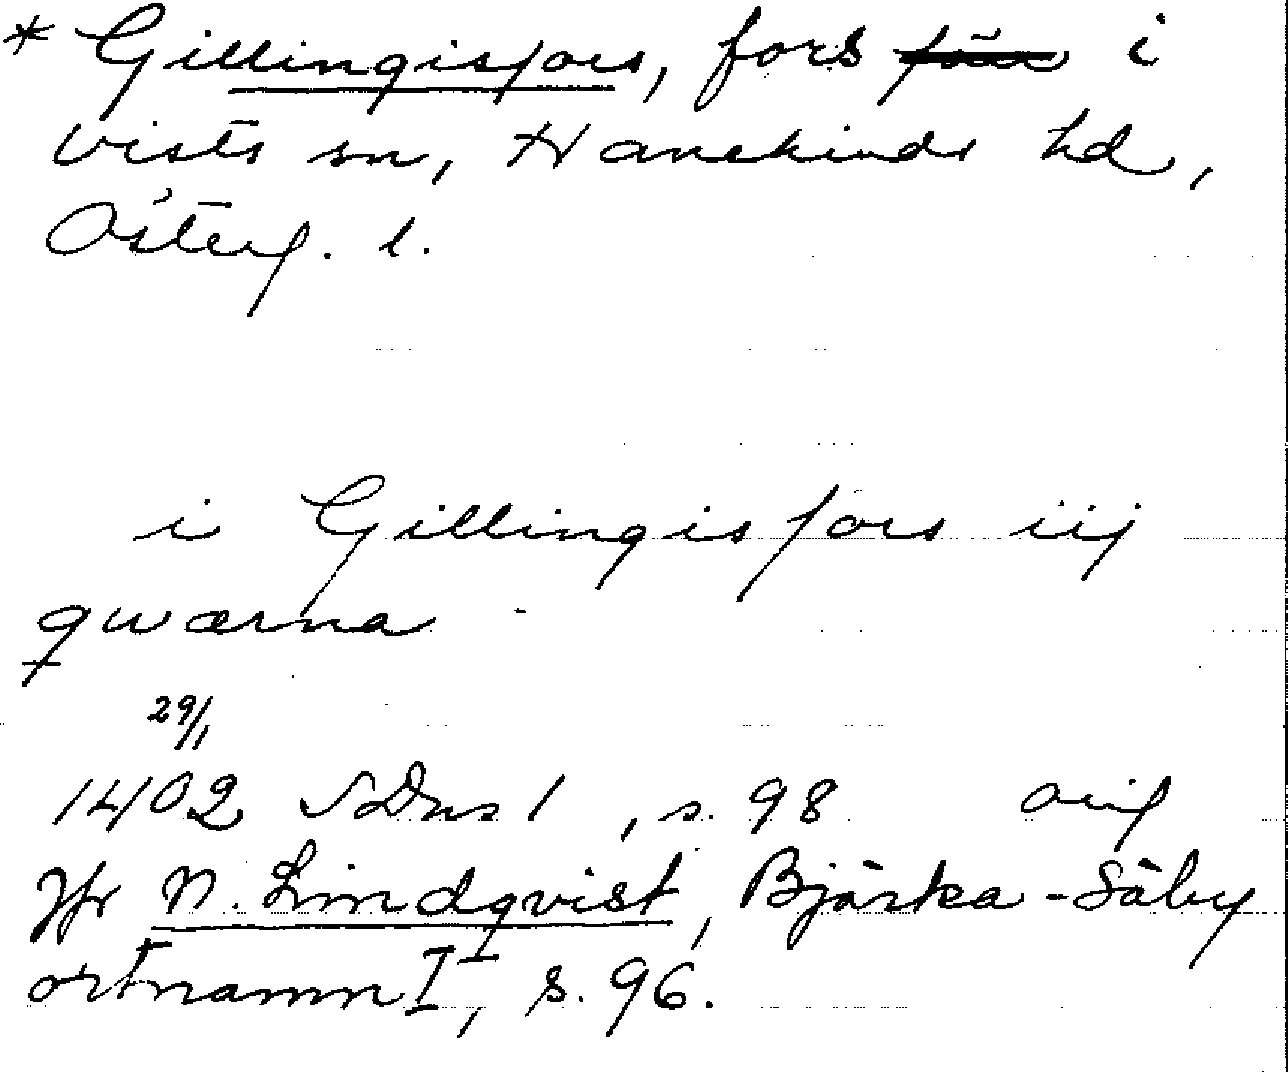 * Gillingisfors, fors i
Vists sn, Hanekinds hd,
Österg. l.
i Gillingisfors iij
qwærna
29/1
1402 SDns 1, s. 98 orig
Jfr N. Lindqvist, Bjärka-Säby
ortnamn I, s. 96.